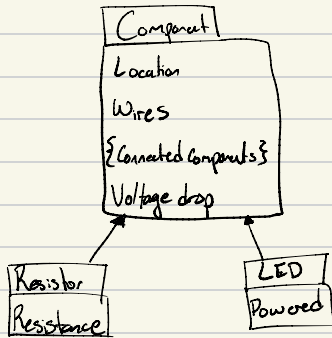 Component
Location
Wires
{Connected Components}
Voltage drop
Resistor
Resistance
LED
Powered